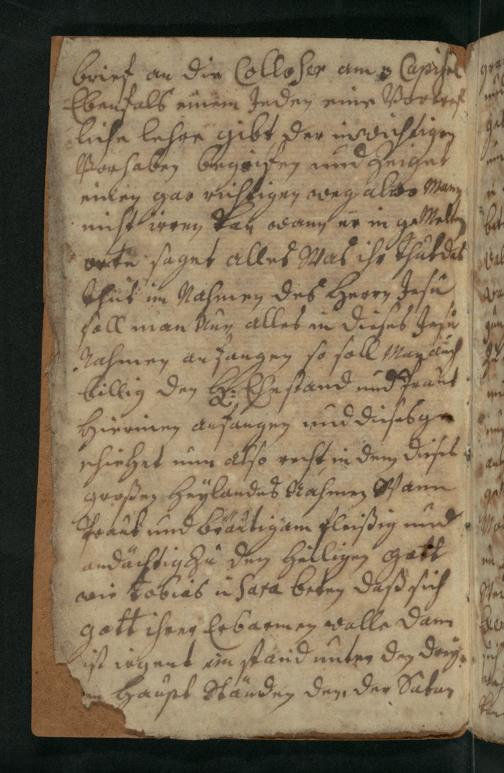 brief an die Collosser am 3 Capitel
Ebenfals einem Jeden eine Vortref
liche lehre gibt der in wichtigen
Vorhaben begrifen und Zeiget
einen gar richtigen weg also Man
nicht irren kan wann er in gemelten
orte saget alles Was ihr thut das
thut im Nahmen des Herrn Jesu
soll man Nun alles in dieses Jesu
Nahmen anfangen so soll Man auch
billig den H: Ehestand und Traut
hierinen anfangen und dieses ge
schiehet nun also recht in dem dieses
großen Heylandes Nahmen Wann
Braut und bräutigam fleißig und
andächtig zu den Heiligen gott
wie Tobias u Sara beten daß sich
gott ihrer Erbarmen wolle dann
ist irgent ein stand unter den drey
en Haupt Ständen den der Satan